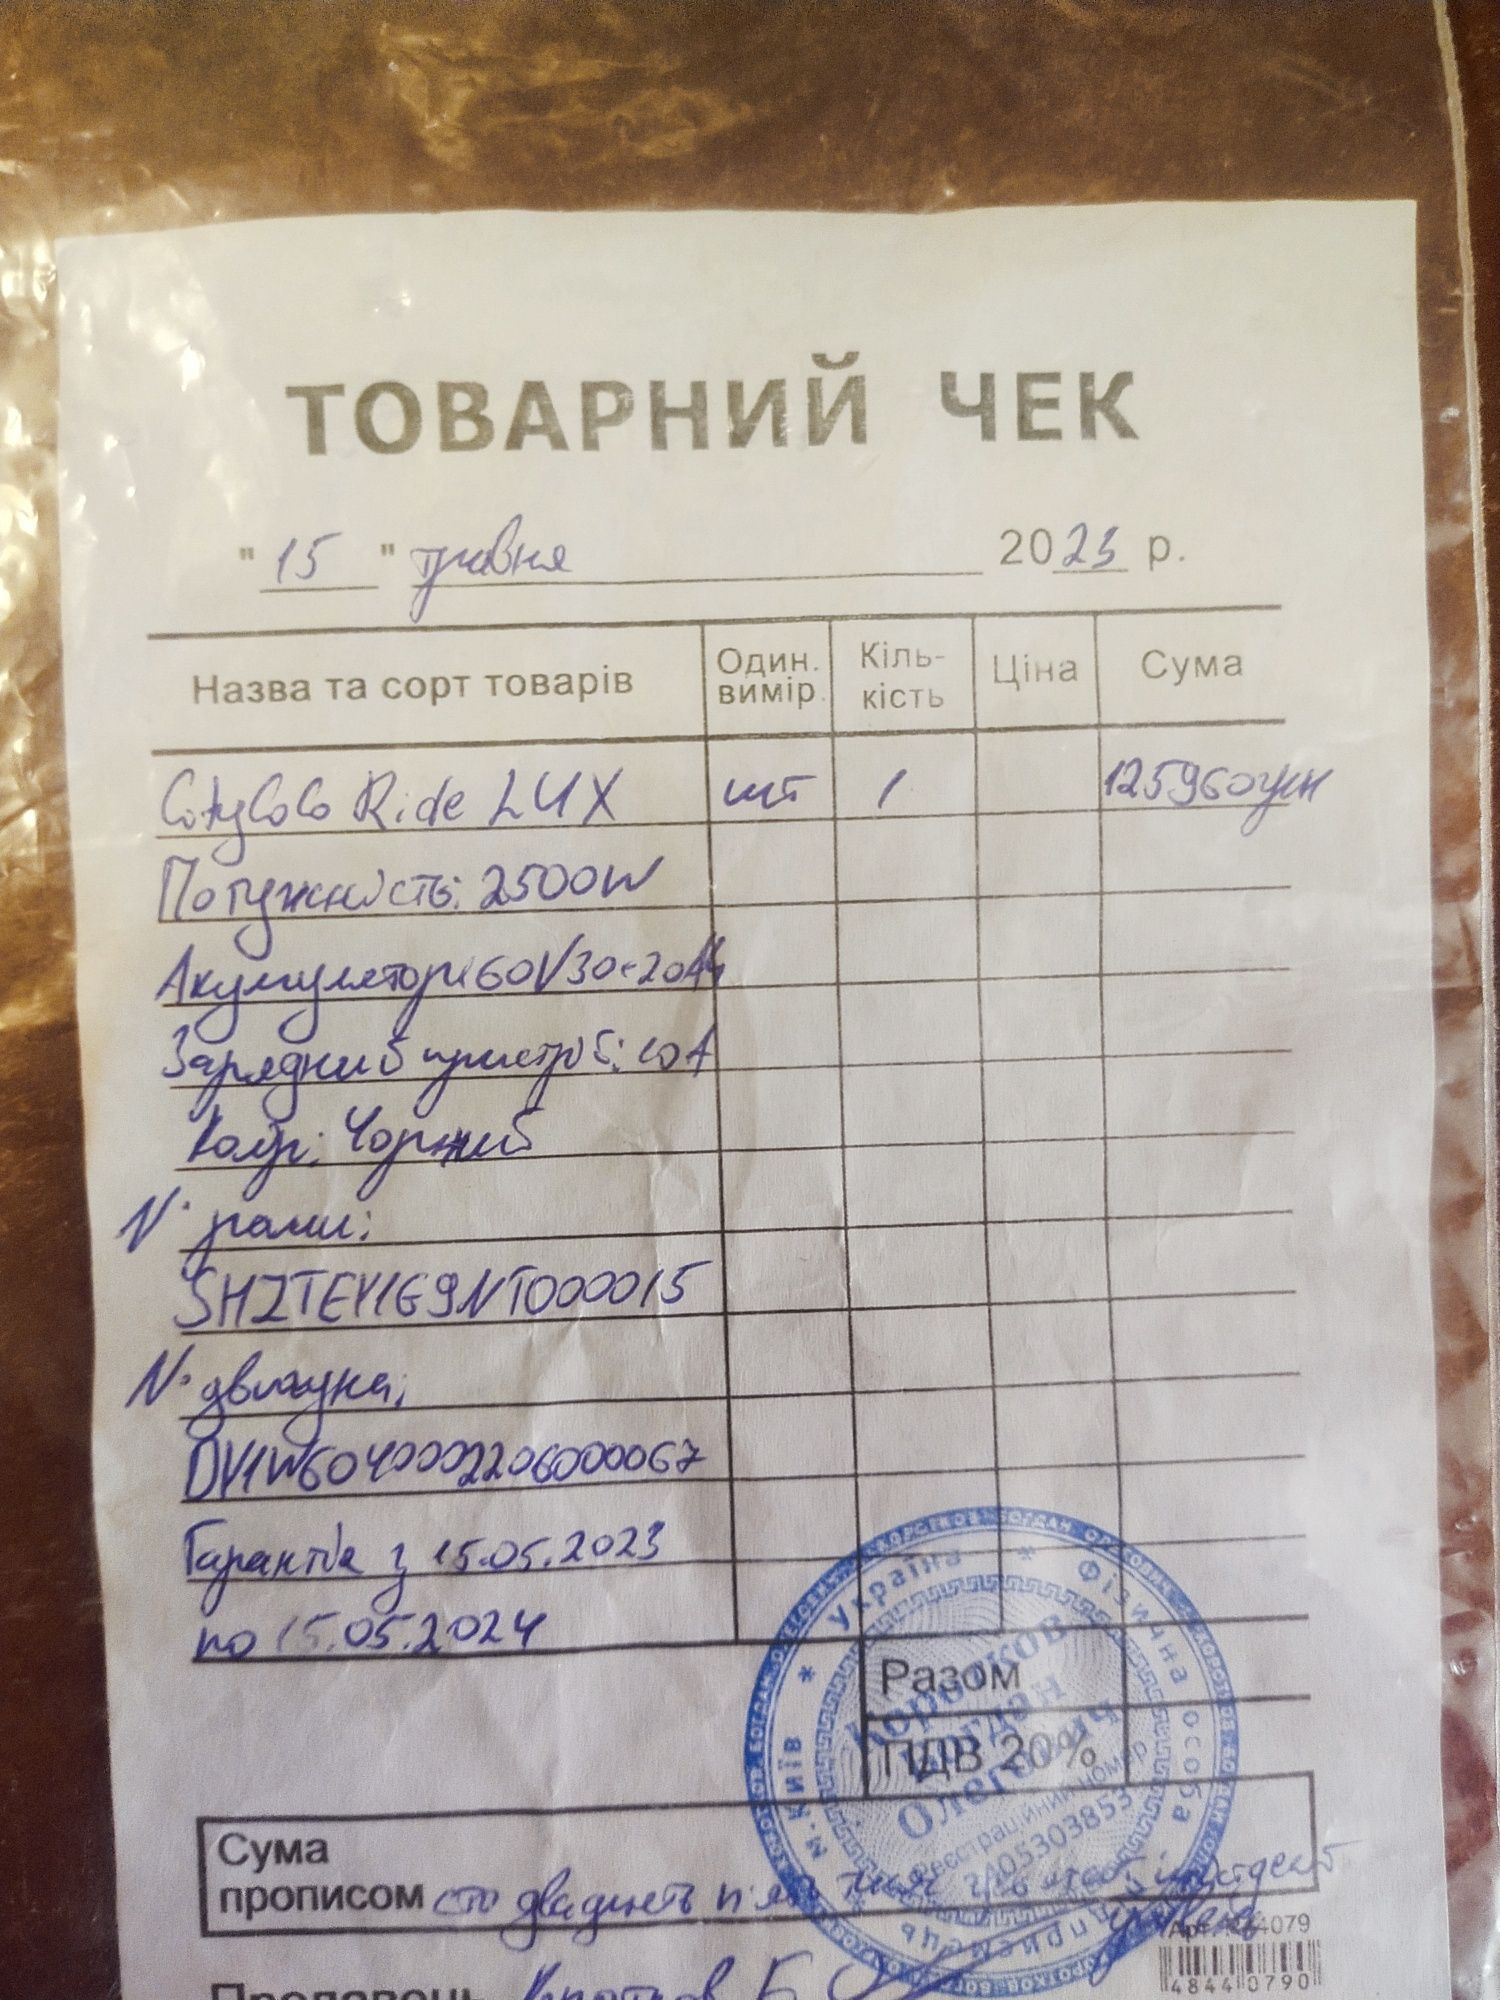 ТОВАРНИЙ ЧЕК
"15" травня 2023 р.
Назва та сорт товарів Один. вимір Кіль-кість Ціна Сума
CityCoCo Ride LUX шт 1 125960грн
Потужність: 2500W
Акумулятори 60V30+20Ah
Зарядний пристрій: 10A
Колір: Чорний
N° рами:
SHZTEY1G9NT000015
N° двигуна:
DY1W6040002206000067
Гарантія з 15.05.2023
по 15.05.2024
Разом
ПДВ 20%
Сума
прописом сто двадцять п'ять тисяч дев'ятсот шістдесят
гривень
Арт. 44079
Продавець Коротков Б
4844 0790
Україна * Фізична особа підприємець * м. Київ *
Коротков
Богдан
Олегович
реєстраційний номер
3405303853